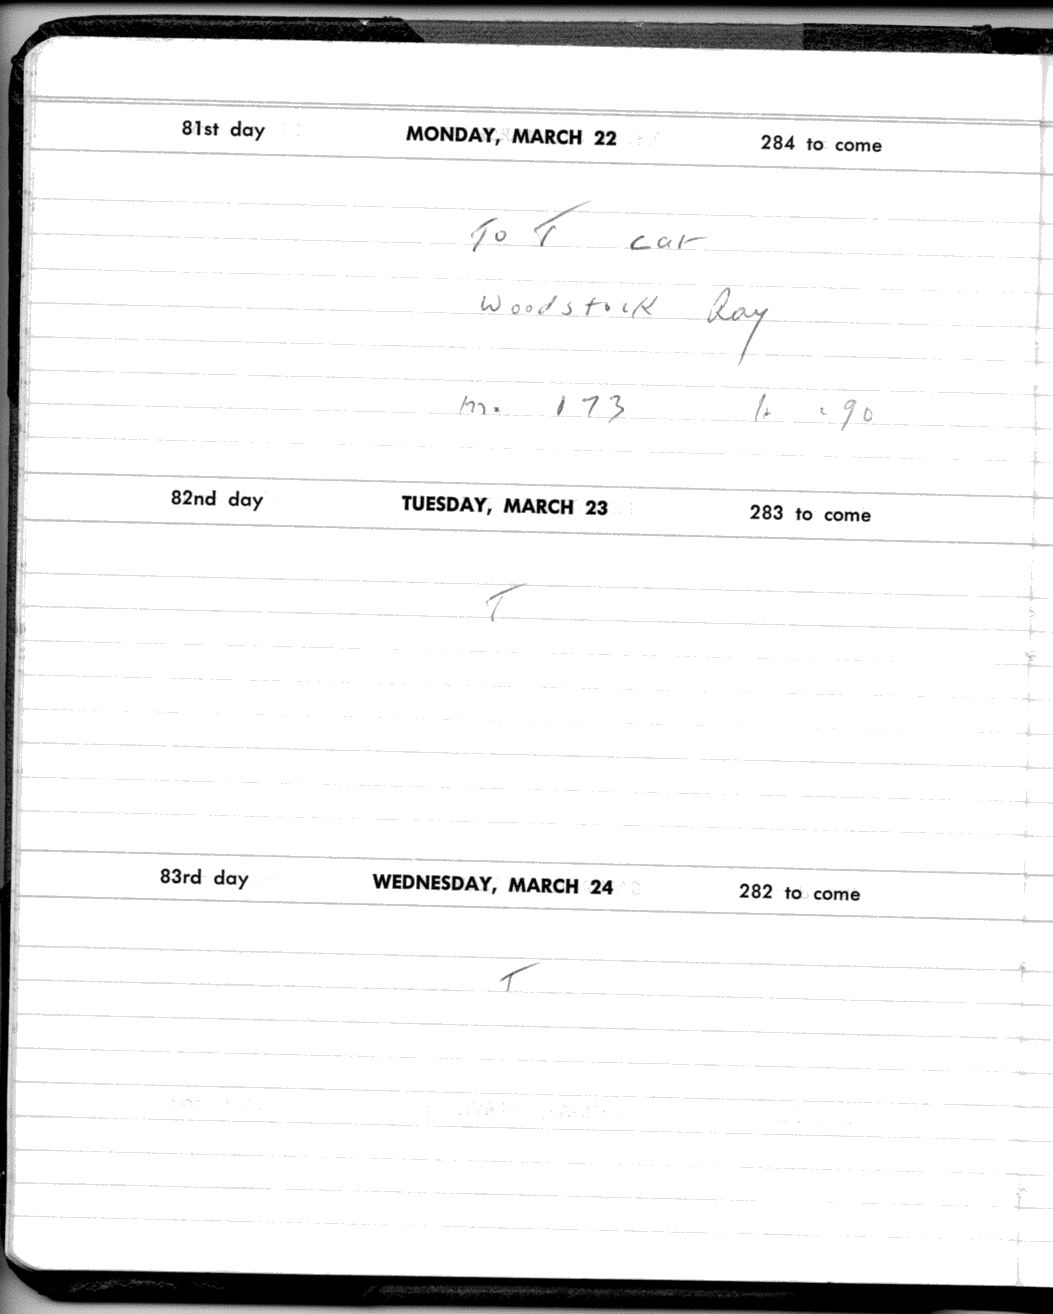 81st day MONDAY, MARCH 22 284 to come
To T car
Woodstock Ray
m. 173 t. .90
82nd day TUESDAY, MARCH 23 283 to come
T
83rd day WEDNESDAY, MARCH 24 282 to come
T